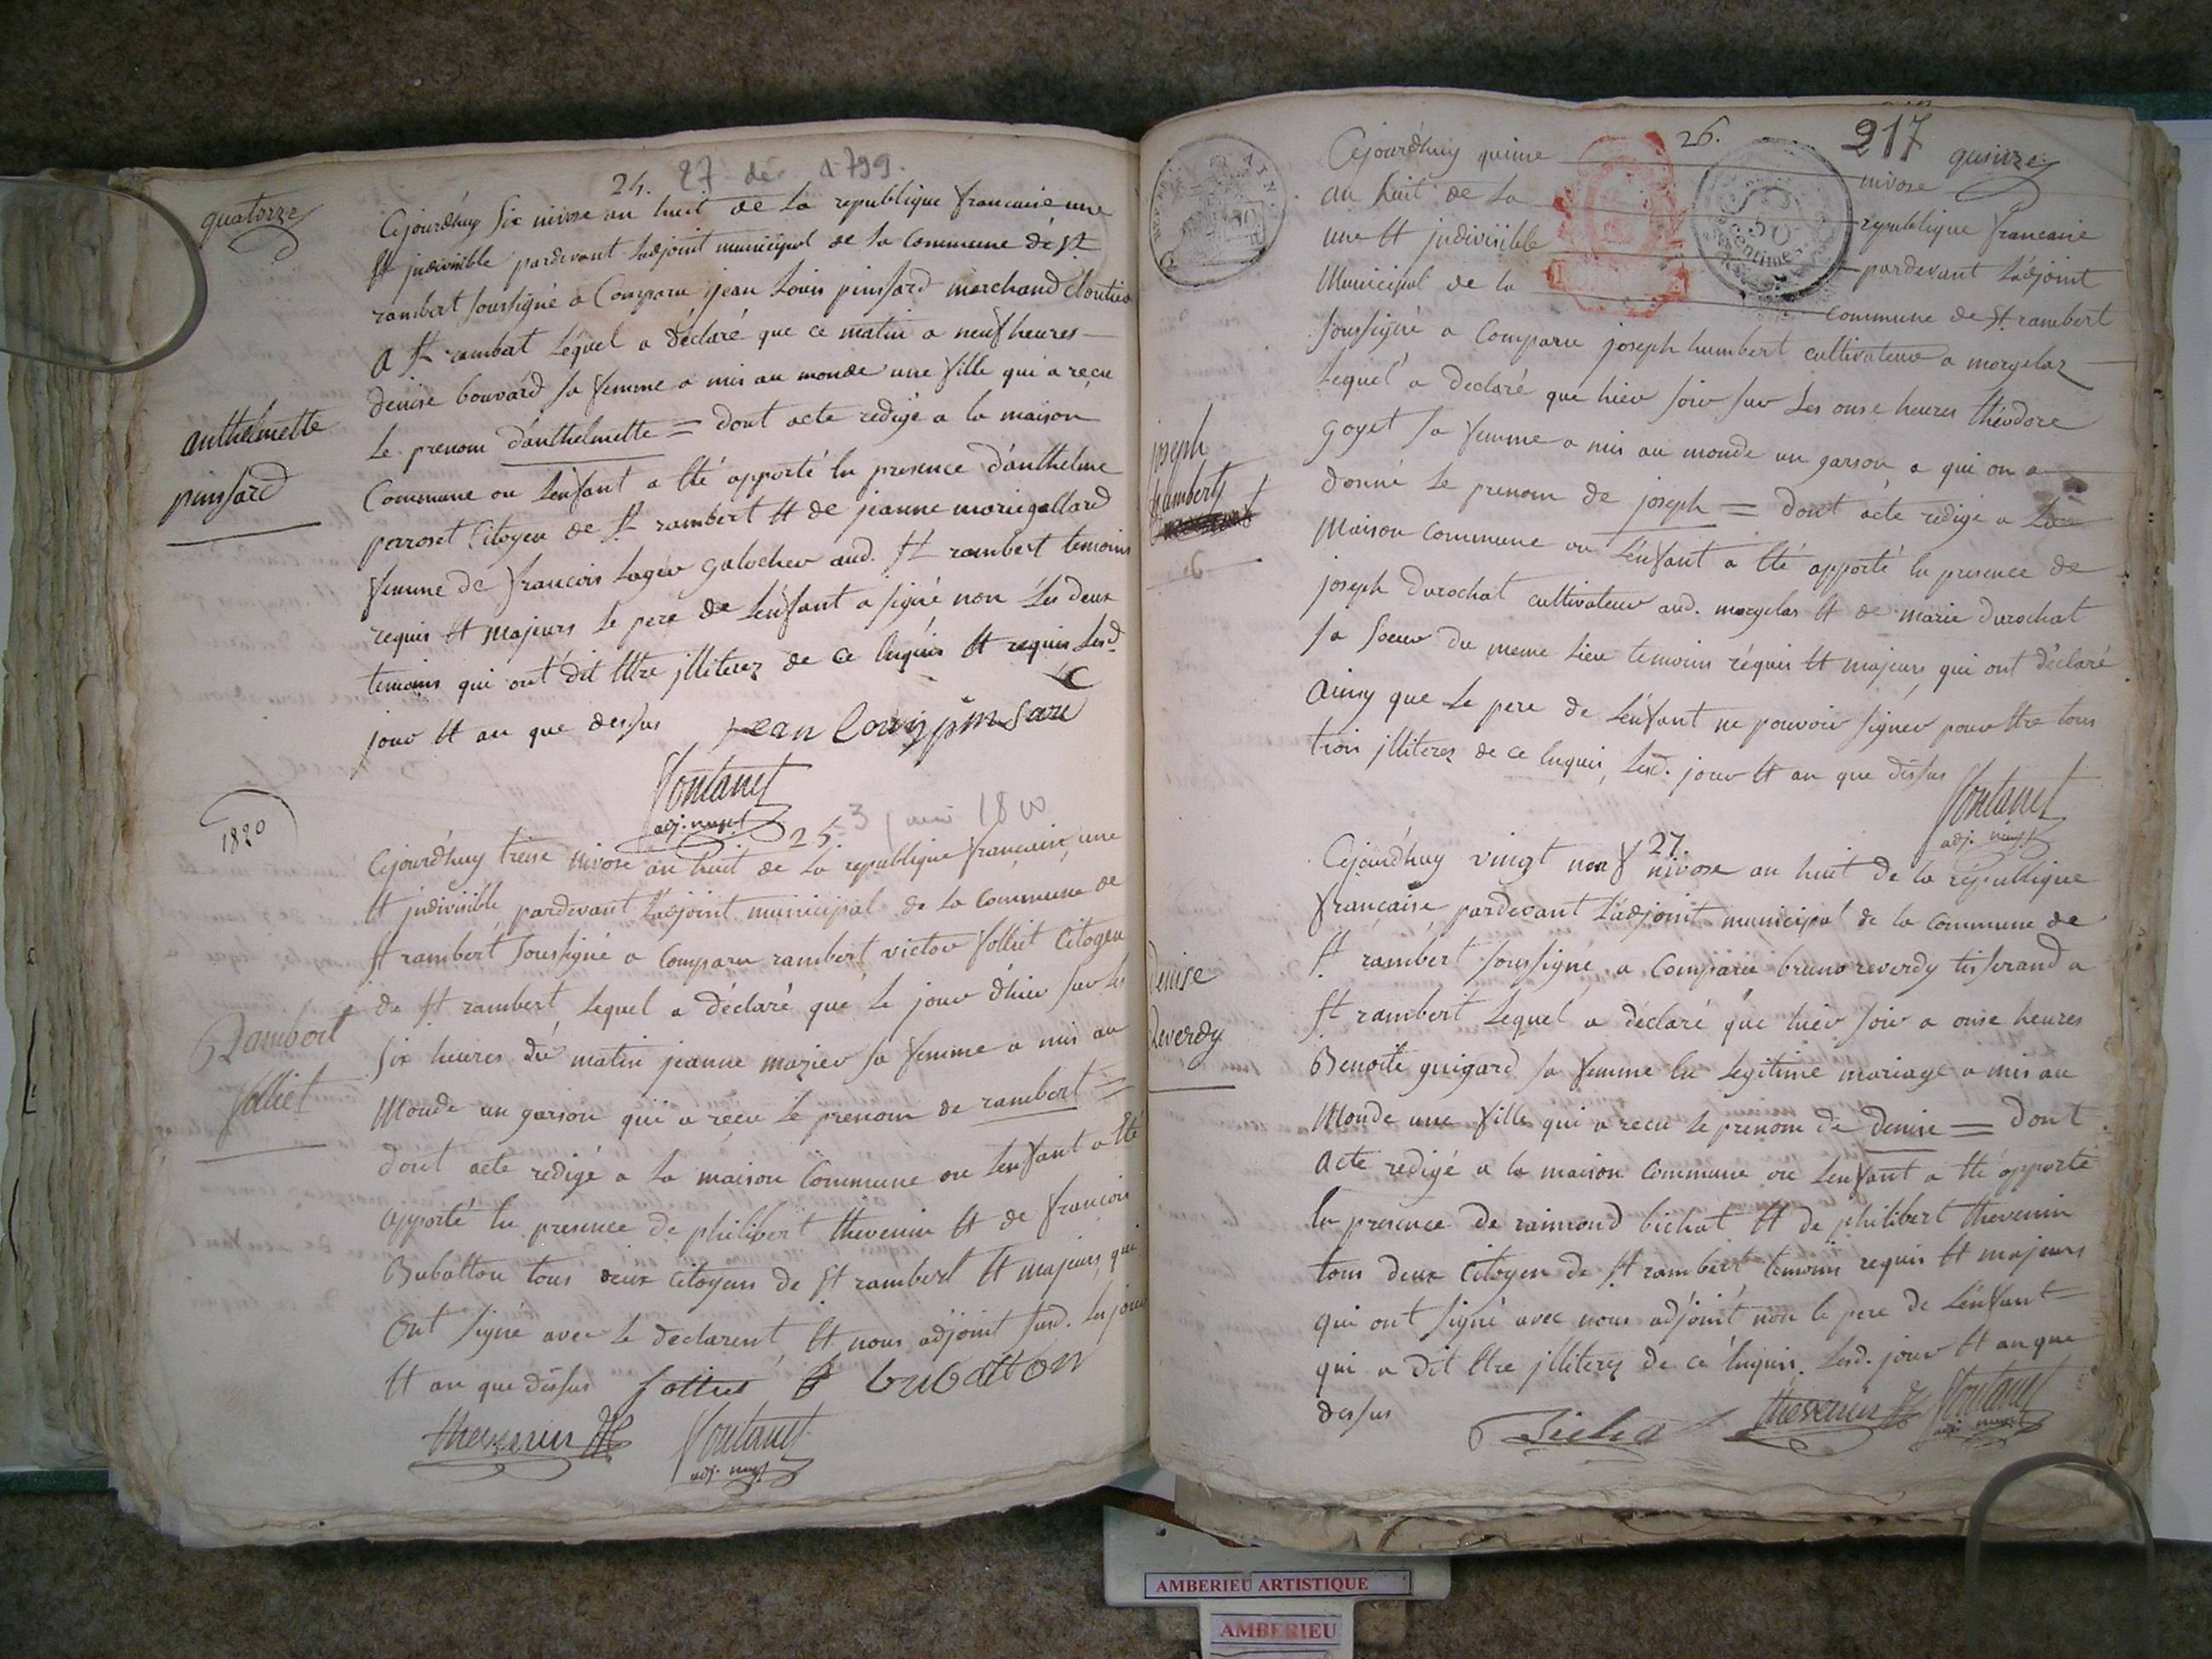 quatorze
24.
27 dé 1799.
Cejourdhuy Six nivose an huit de la republique francaise une
Et jndivisible pardevant Ladjoint municipal de la Commune de St
rambert soussigné a Comparu jean Louis pinssard marchand cloutier
a St rambert Lequel a declaré que ce matin a neuf heures
denise bouvard sa femme a mis au monde une fille qui a reçu
Le prenom d'anthelmette = dont acte redigé a la maison
Commune ou Lenfant a Eté apporté En presence d'anthelme
perroset Citoyen de St rambert Et de jeanne marie gallard
femme de francois Lager galocher aud. St rambert temoins
requis Et majeurs Le pere de Lenfant a signé non Les deux
temoins qui ont dit Etre jlliterez de ce Enquis Et requis Lesd.
jour Et an que dessus
jean Louis pinsard
fontanet
adj. mupl
anthelmette
pinssard
1820
25.
3 janvier 1800
Cejourdhuy treise nivose an huit de la republique francaise une
Et jndivisible pardevant Ladjoint municipal de la Commune de
St rambert soussigné a Comparu rambert victor folliet Citoyen
de St rambert Lequel a déclaré que Le jour d'hier sur Les
Six heures du matin jeanne mazier sa femme a mis au
Monde un garson qui a reçu Le prenom de rambert =
dont acte redigé a La maison Commune ou Lenfant a Eté
apporté En presence de philibert thevenin Et de francois
Bubatton tous deux Citoyens de St rambert Et majeurs, qui
Ont signé avec Le declarent, Et nous adjoint susd. Les jour
Et an que dessus folliet bubatton
thevenin fontanet
adj. mupl
Rambert
folliet
26.
217
quinze
Cejourdhuy quinze nivose
an huit de La republique francaise
une Et jndivisible pardevant Ladjoint
Municipal de la commune de St rambert
soussigné a Comparu joseph humbert cultivateur a morgelaz
Lequel a declaré que hier soir sur Les onse heures théodore
goyet sa femme a mis au monde un garson a qui on a
donné Le prenom de joseph = dont acte redigé a La
Maison commune ou Lenfant a Eté apporté En presence de
joseph durochat cultivateur aud. morgelas Et de marie durochat
sa soeur du meme Lieu temoins réquis Et majeurs qui ont déclaré
Ainsy que Le pere de Lenfant ne pouvoir signer pour Etre tous
trois jlliterez de ce Enquis, Lesd. jour Et an que dessus
fontanet
adj. mupl
joseph
humbert
50
centimes
27.
Cejourdhuy vingt neuf nivose an huit de la republique
française pardevant Ladjoint municipal de la commune de
St rambert soussigné a Comparu bruno reverdy tisserand a
St rambert Lequel a déclaré que hier soir a onse heures
Benoite guigard sa femme En Legitime mariage a mis au
Monde une fille qui a recu Le prenom de denise = dont
Acte redigé a la maison commune ou Lenfant a Eté apporté
En presence de raimond bichat Et de philibert thevenin
tous deux Citoyen de St rambert temoins requis Et majeurs
qui ont signé avec nous adjoint non le pere de Lenfant
qui a dit Etre jlliterez de ce Enquis. Lesd. jour Et an que
dessus
Bichat thevenin fontanet
adj. mupl
denise
Reverdy
AMBERIEU ARTISTIQUE
AMBERIEU